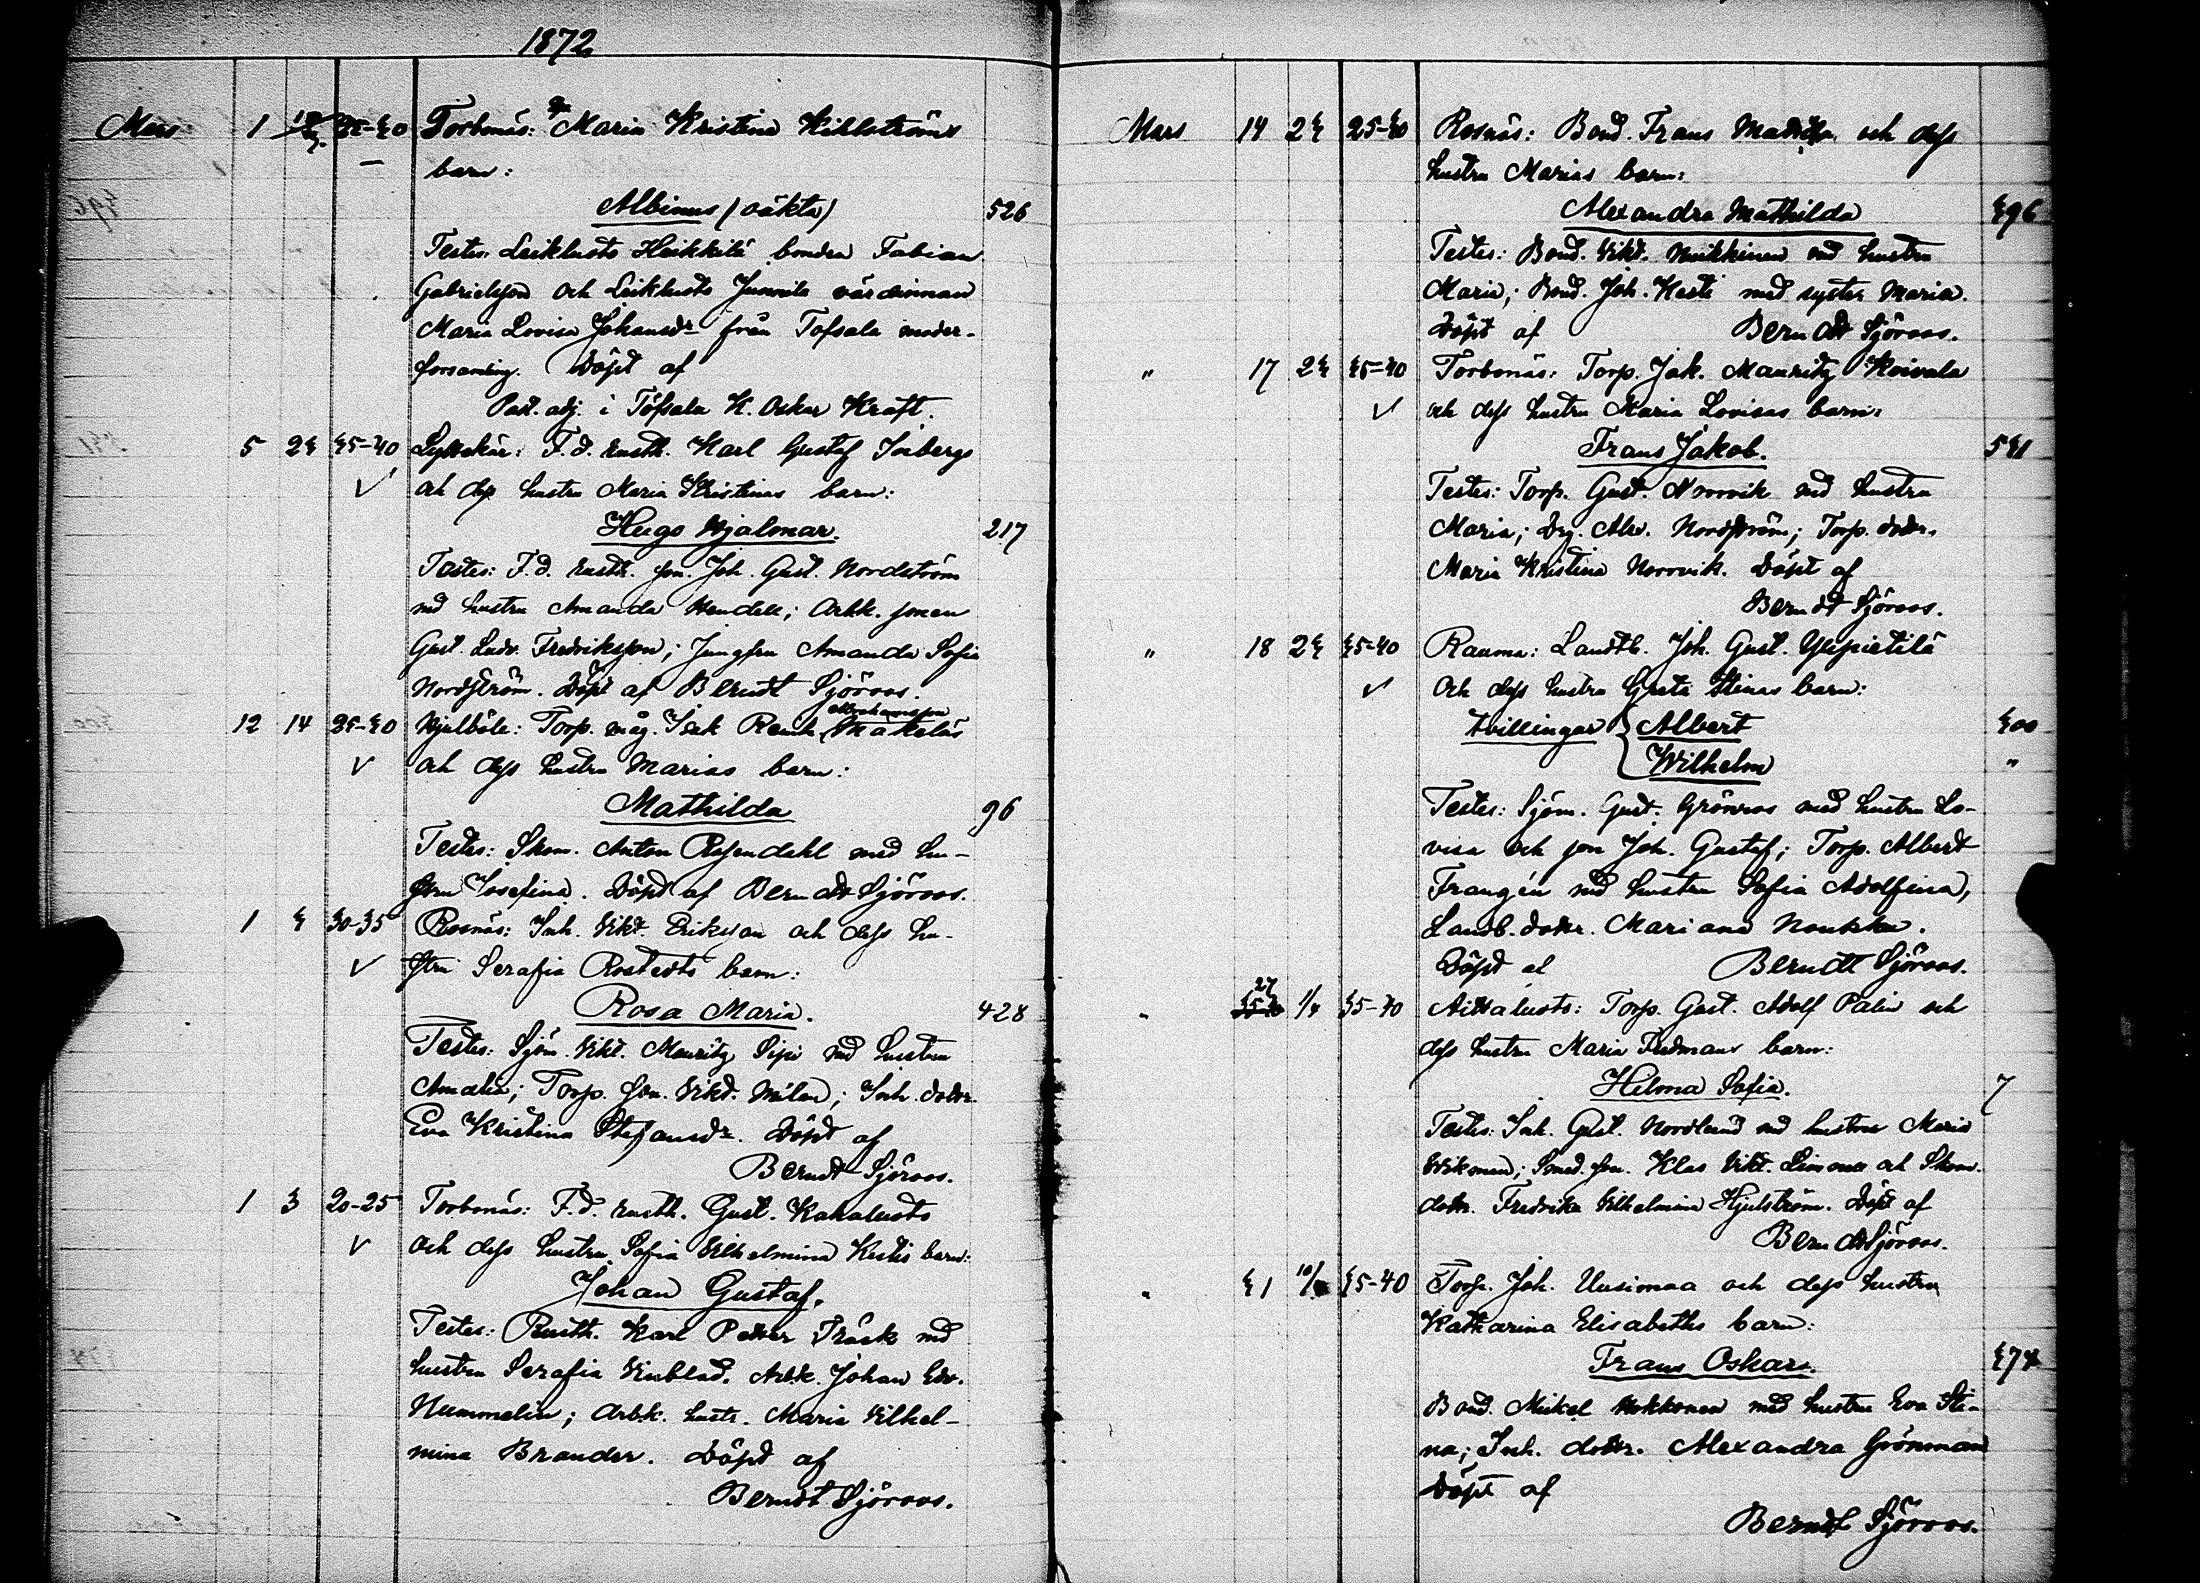 1872
Mars 1 25-30 Torbonäs: Maria Kristina Kihlströms
barn:
Albinus (oäkta) 526
Testes: Leikluoto Heikkilä bonden Fabian
Gabrielsson och Leikluoto Junnila värdinnan
Maria Lovisa Johansdr från Töfsala moder-
församling. Döpt af
Past. adj. i Töfsala K. Oskar Kraft.
5 24 35-40 Lyttskär: F. d. rusth. Karl Gustaf
✓ och dess hustru Maria Kristinas barn:
Hugo Hjalmar. 217
Testes: F. d. rusth. son. Joh. Gust. Nordström
md hustru Amanda; Arbk. sonen
Gust. Ludv. Fredriksson; Jungfru Amanda Sofia
Nordström. Döpt af Berndt Sjöroos.
Abrahamsson
12 14 25-30 Hjulböle: Torp. måg. Isak Mäkeläs
✓ och dess hustru Marias barn:
Mathilda 96
Testes: Skom. Anton Rosendahl med hu-
stru Josefina. Döpt af Berndt Sjöroos.
1 3 30-35 Rosnäs: Inh. Vikt. Eriksson och dess hu-
✓ stru Serafia Rostedts barn:
Rosa Maria. 428
Testes: Sjöm. Vikt. Mauritz Sipi md hustru
Amalia; Torp. son. Vikt. Milen; Inh. dotr.
Eva Kristina Stefansdr. Döpt af
Berndt Sjöroos.
1 3 20-25 Torbonäs: F. d. rusth. Gust. Kahaluoto
✓ och dess hustru Sofia Vilhelmina Kestis barn:
Johan Gustaf.
Testes: Rusth. Karl Peter Träsk md
hustru Serafia Vinblad. Arbk. Johan Edv.
Nummelin; Arbk. hustr. Maria Vilhel-
mina Brander. Döpt af
Berndt Sjöroos.
Mars 14 24 25-30 Rosnäs: Bond. Frans och dess
hustru Marias barn:
Alexandra Mathilda 396
Testes: Bond. Vikt. Nuikkinen md hustru
Maria; Bond. Joh. Kesti med syster Maria.
Döpt af Berndt Sjöroos.
" 17 24 35-40 Torbonäs: Torp. Jak. Mauritz Koivula
✓ och dess hustru Maria Lovisas barn:
Frans Jakob. 531
Testes: Torp. Gust. Norrvik md hustru
Maria; Dr. Alex. Nordström; Torp. dotr.
Maria Kristina Norrvik. Döpt af
Berndt Sjöroos.
" 18 24 35-40 Rauma: Landtb. Joh. Gust. Ylipietilä
✓ och dess hustru Greta Stinas barn:
tvillingar { Albert 300
Wilhelm "
Testes: Sjöm. Gust. Grönroos med hustru Lo-
visa och son Joh. Gustaf; Torp. Albert
Frangén md hustru Sofia Adolfina,
Landb. dotr. Mariana Noukka.
Döpt af Berndt Sjöroos.
" 27 1/4 35-40 Aittaluoto: Torp. Gust. Adolf Palin och
dess hustru Maria Fredmans barn:
Hilma Sofia. 7
Testes: Inh. Gust. Nordlund md hustru Maria
Wikman; Smed. son. Klas Vikt. och Skom.
dotr. Fredrika Vilhelmina Hjulström. Döpt af
Berndt Sjöroos.
" 31 10/4 35-40 Torp. Joh. Uusimaa och dess hustru
Katharina Elisabeths barn:
Frans Oskar. 374
Bond. Mickel Hokkonen med hustru Eva Sti-
na; Inh. dotr. Alexandra Grönman
Döpt af
Berndt Sjöroos.